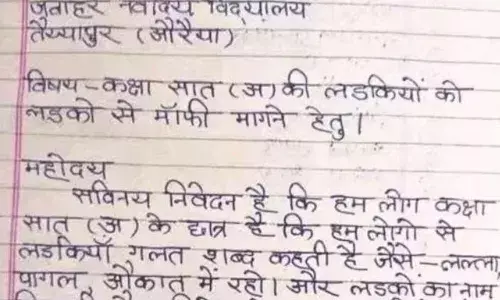 जवाहर नवोदय विद्यालय
तैय्यापुर (औरैया)
विषय - कक्षा सात (अ) की लडकियों को
लडको से मॉफी मागने हेतु।
महोदय
सविनय निवेदन है कि हम लोग कक्षा
सात (अ) के छात्र है कि हम लोगो से
लडकियाँ गलत शब्द कहती है जैसे - लल्ला
पागल, औकात में रहो। और लडको का नाम